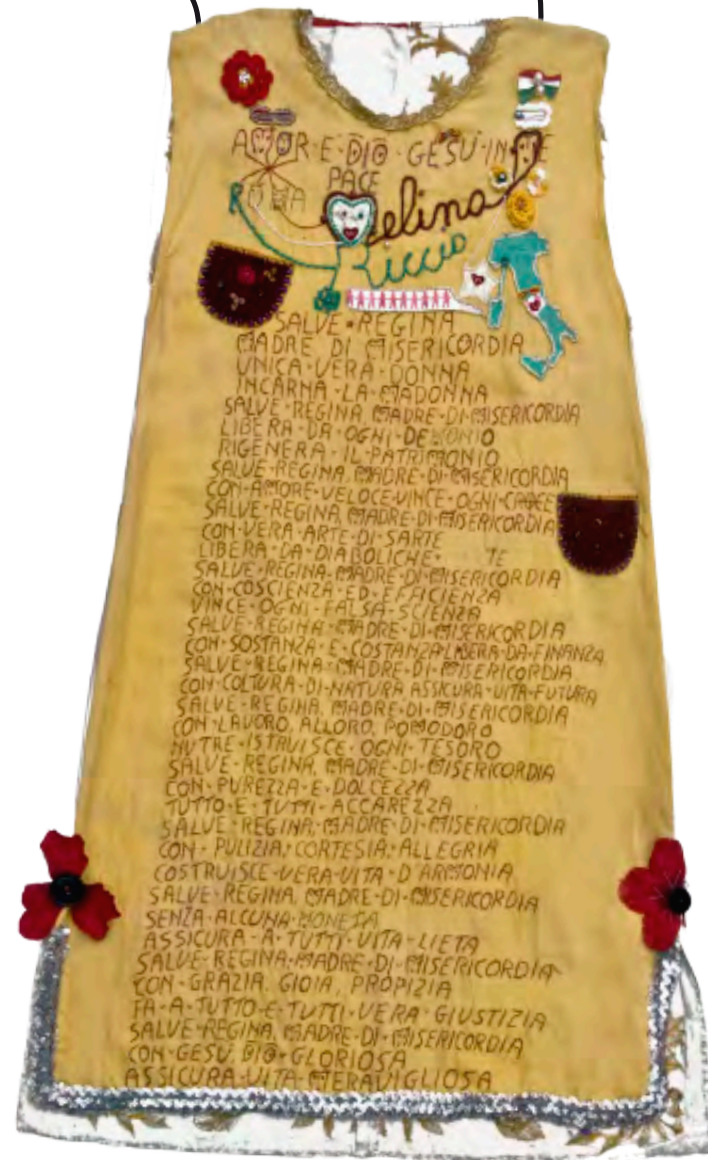 AMOR·E·DIO·GESÙ·IN·TE
PACE
ROMA
elina
Riccio
SALVE·REGINA
MADRE DI MISERICORDIA
UNICA·VERA·DONNA
INCARNA·LA·MADONNA
SALVE·REGINA, MADRE·DI·MISERICORDIA
LIBERA·DA·OGNI·DEMONIO
RIGENERA·IL·PATRIMONIO
SALVE·REGINA, MADRE·DI·MISERICORDIA
CON·AMORE·VELOCE·VINCE·OGNI·CROCE
SALVE·REGINA, MADRE·DI·MISERICORDIA
CON·VERA·ARTE·DI·SARTE
LIBERA·DA·DIABOLICHE· TE
SALVE·REGINA·MADRE·DI·MISERICORDIA
CON·COSCIENZA·ED·EFFICIENZA
VINCE·OGNI·FALSA·SCIENZA
SALVE·REGINA·MADRE·DI·MISERICORDIA
CON·SOSTANZA·E·COSTANZA·LIBERA·DA·FINANZA
SALVE·REGINA·MADRE·DI·MISERICORDIA
CON·COLTURA·DI·NATURA ASSICURA·VITA·FUTURA
SALVE·REGINA, MADRE·DI·MISERICORDIA
CON·LAVORO, ALLORO, POMODORO
NUTRE·ISTRUISCE·OGNI·TESORO
SALVE·REGINA, MADRE·DI·MISERICORDIA
CON·PUREZZA·E·DOLCEZZA
TUTTO·E·TUTTI·ACCAREZZA
SALVE·REGINA·MADRE·DI·MISERICORDIA
CON·PULIZIA·CORTESIA·ALLEGRIA
COSTRUISCE·VERA·VITA·D'ARMONIA
SALVE·REGINA, MADRE·DI·MISERICORDIA
SENZA·ALCUNA·MONETA
ASSICURA·A·TUTTI·VITA·LIETA
SALVE·REGINA·MADRE·DI·MISERICORDIA
CON·GRAZIA, GIOIA, PROPIZIA
FA·A·TUTTO·E·TUTTI·VERA·GIUSTIZIA
SALVE·REGINA, MADRE·DI·MISERICORDIA
CON·GESÙ DIO·GLORIOSA
ASSICURA·VITA·MERAVIGLIOSA